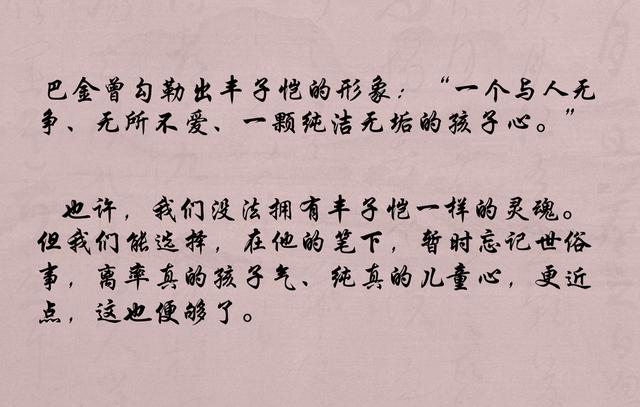 巴金曾勾勒出丰子恺的形象：“一个与人无
争、无所不爱、一颗纯洁无垢的孩子心。”
也许，我们没法拥有丰子恺一样的灵魂。
但我们能选择，在他的笔下，暂时忘记世俗
事，离率真的孩子气、纯真的儿童心，更近
点，这也便够了。